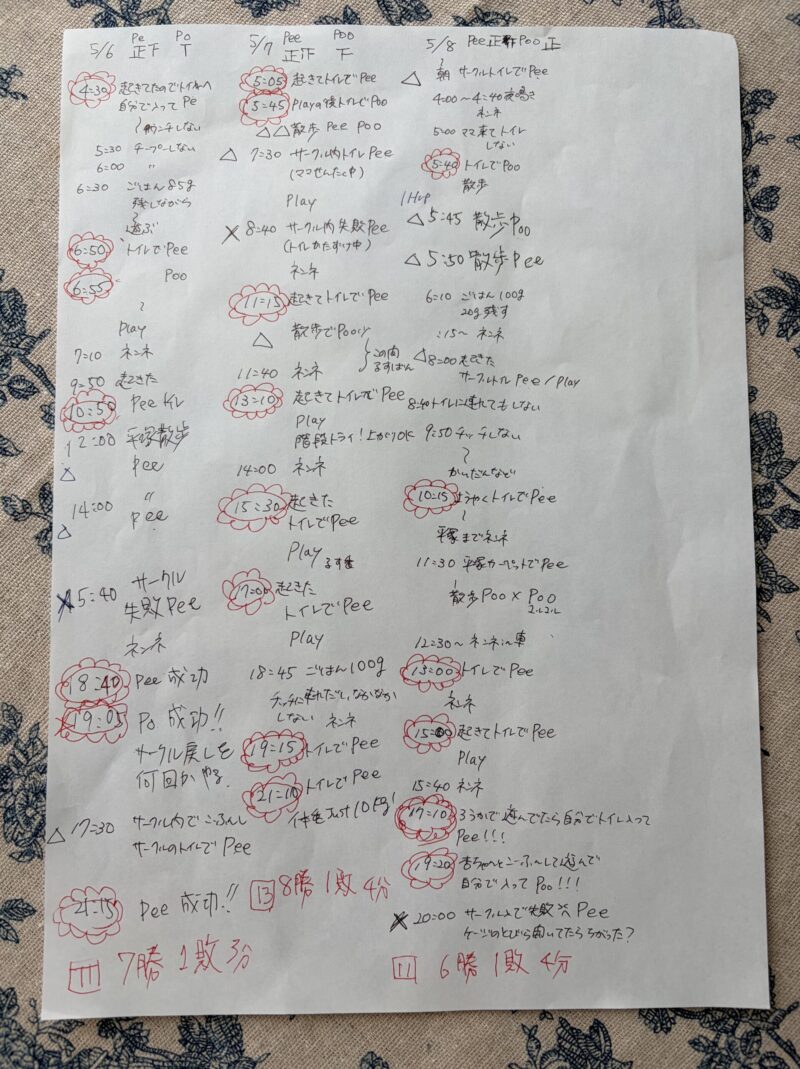 5/6 Pe 正下 Po 下
4:30 起きてたのでトイレへ
自分で入って Pe
ウンチしない
5:30 チープーしない
6:00 〃
6:30 ごはん85g
残しながら
遊ぶ
6:50 トイレでPee
6:55 Poo
Play
7:10 ネンネ
9:50 起きた
10:50 Pee トイレ
12:00 平塚散歩
△ Pee
14:00 〃
△ Pee
X 15:40 サークル
失敗 Pee
ネンネ
18:40 Pee 成功
19:05 Po 成功!!
サークル戻しを
何回かやる
△ 17:30 サークル内でこふんし
サークルのトイレで Pee
21:15 Pee 成功!!
11 7勝 1敗 3分
5/7 Pee 正下 Poo 下
5:05 起きてトイレでPee
5:45 Playの後トイレでPoo
△△散歩 Pee Poo
△ 7:30 サークル内トイレ Pee
(ママせんたく中)
Play
X 8:40 サークル内失敗Pee
(トイレかたずけ中)
ネンネ
11:15 起きてトイレでPee
△ 散歩でPoo
11:40 ネンネ
この間
るすばん
13:10 起きてトイレでPee
Play
階段トライ!上がりOK
14:00 ネンネ
15:30 起きた
トイレでPee
Play るす番
17:00 起きた
トイレでPee
Play
18:45 ごはん100g
チッチに連れだし、なかなか
しない ネンネ
19:15 トイレでPee
21:10 トイレで Pee
体重Just 10kg!
13 8勝 1敗 4分
5/8 Pee 正 Poo 正
△ 朝 サークルトイレでPee
4:00〜4:40夜鳴き
ネンネ
5:00 ママ来てトイレ
しない
5:40 トイレでPoo
散歩
△ 5:45 散歩中 Poo
△ 5:50 散歩 Pee
6:10 ごはん100g
20g残す
:15〜 ネンネ
△ 8:00 起きた
サークルトイレ Pee / Play
8:40トイレに連れてもしない
9:50 チッチしない
かいだんなど
10:15 ようやくトイレでPee
平塚までネンネ
11:30 平塚カーペットでPee
散歩 Poo × Poo
12:30〜ネンネin車
13:00 トイレでPee
ネンネ
15:00 起きてトイレでPee
Play
15:40 ネンネ
17:10 ろうかで遊んでたら自分でトイレ入って
Pee!!!
19:20 杏ちゃんとこーふんして遊んで
自分で入って Poo!!!
X 20:00 サークル入で失敗 Pee
ケージのとびら向いてたらちがった?
11 6勝 1敗 4分